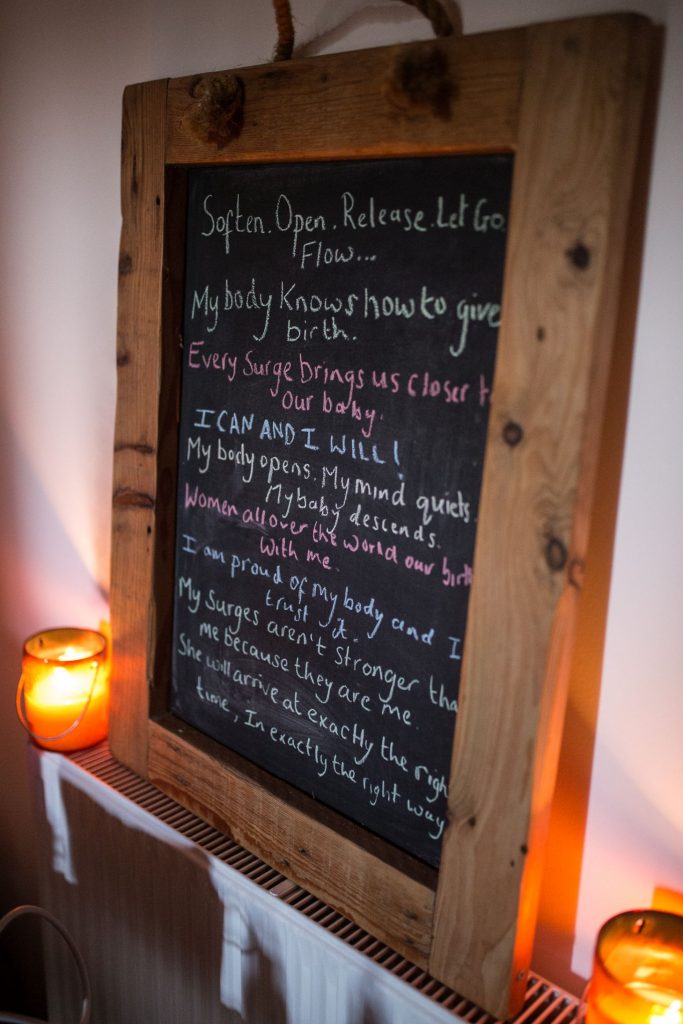 Soften. Open. Release. Let Go.
Flow...
My body Knows how to give
birth.
Every Surge brings us closer to
Our baby.
I CAN AND I WILL!
My body opens. My mind quiets.
My baby descends.
Women all over the world our birth
with me.
I am proud of my body and I
trust it.
My Surges aren't Stronger tha
me because they are me.
She will arrive at exactly the righ
time, In exactly the right way